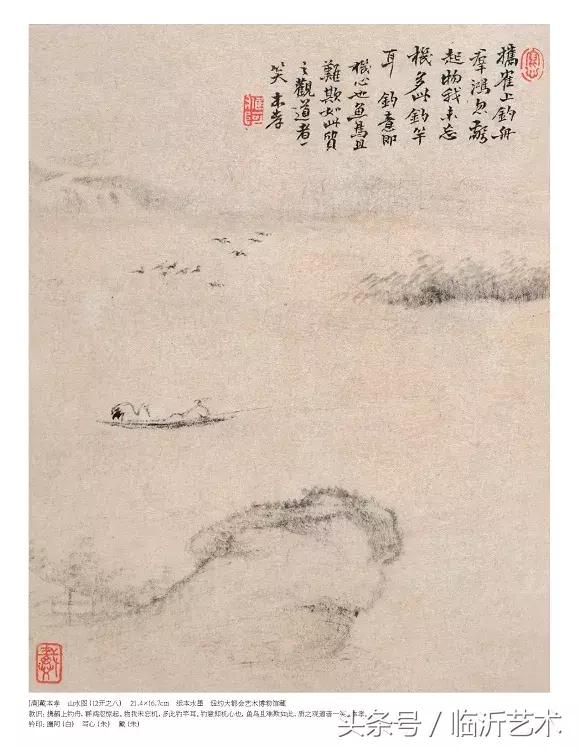 攜寉上釣舟
羣鴻忽驚
起物我未忘
機多此釣竿
耳釣意即
機心也魚鳥且
難欺如此質
之觀道者一
笑本孝
鷹阿
[清]戴本孝 山水图(12开之八) 21.4×16.7cm 纸本水墨 纽约大都会艺术博物馆藏
款识：携鹤上钓舟，群鸿忽惊起。物我未忘机，多此钓竿耳。钓意即机心也，鱼鸟且难欺如此，质之观道者一笑。本孝。
钤印：鹰阿(白) 写心(朱) 戴(朱)
头条号/临沂艺术